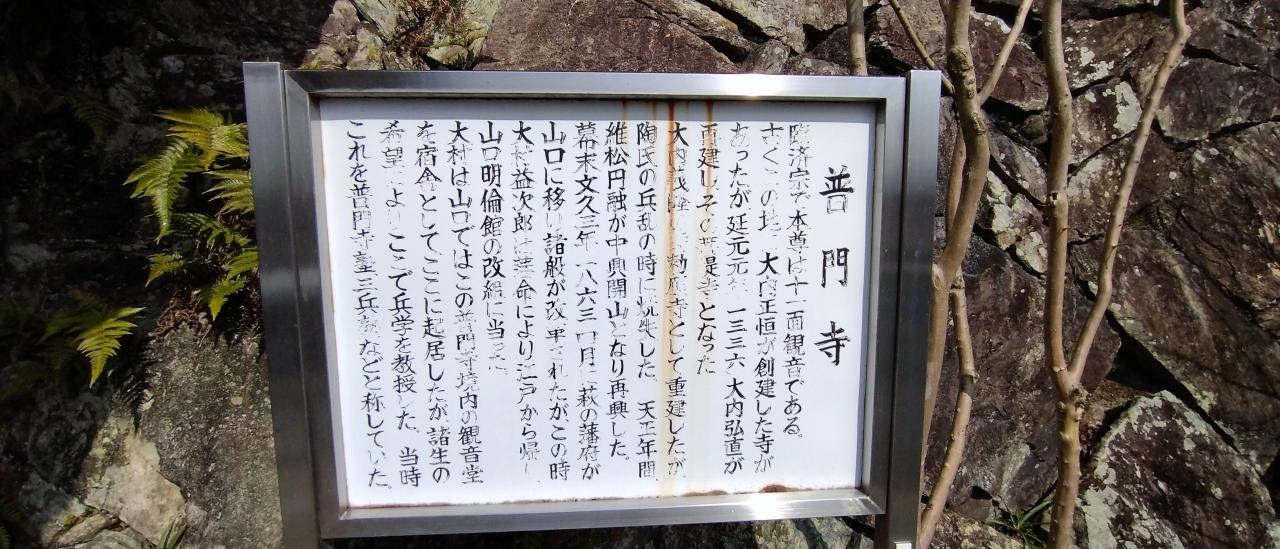 普門寺
臨済宗で本尊は十一面観音である。
古くこの地に大内正恒が創建した寺が
あったが延元元年一三三六大内弘直が
再建しその菩提寺となった
大内義隆 勅願寺として重建したが
陶氏の兵乱の時に焼失した。天正年間
維松円融が中興開山となり再興した。
幕末文久三年一八六三 四月に萩の藩府が
山口に移り諸般が改革されたがこの時
大村益次郎は藩命により江戸から帰り
山口明倫館の改組に当った。
大村は山口ではこの普門寺境内の観音堂
を宿舎としてここに起居したが諸生の
希望によりここで兵学を教授した。当時
これを普門寺塾三兵塾などと称していた。